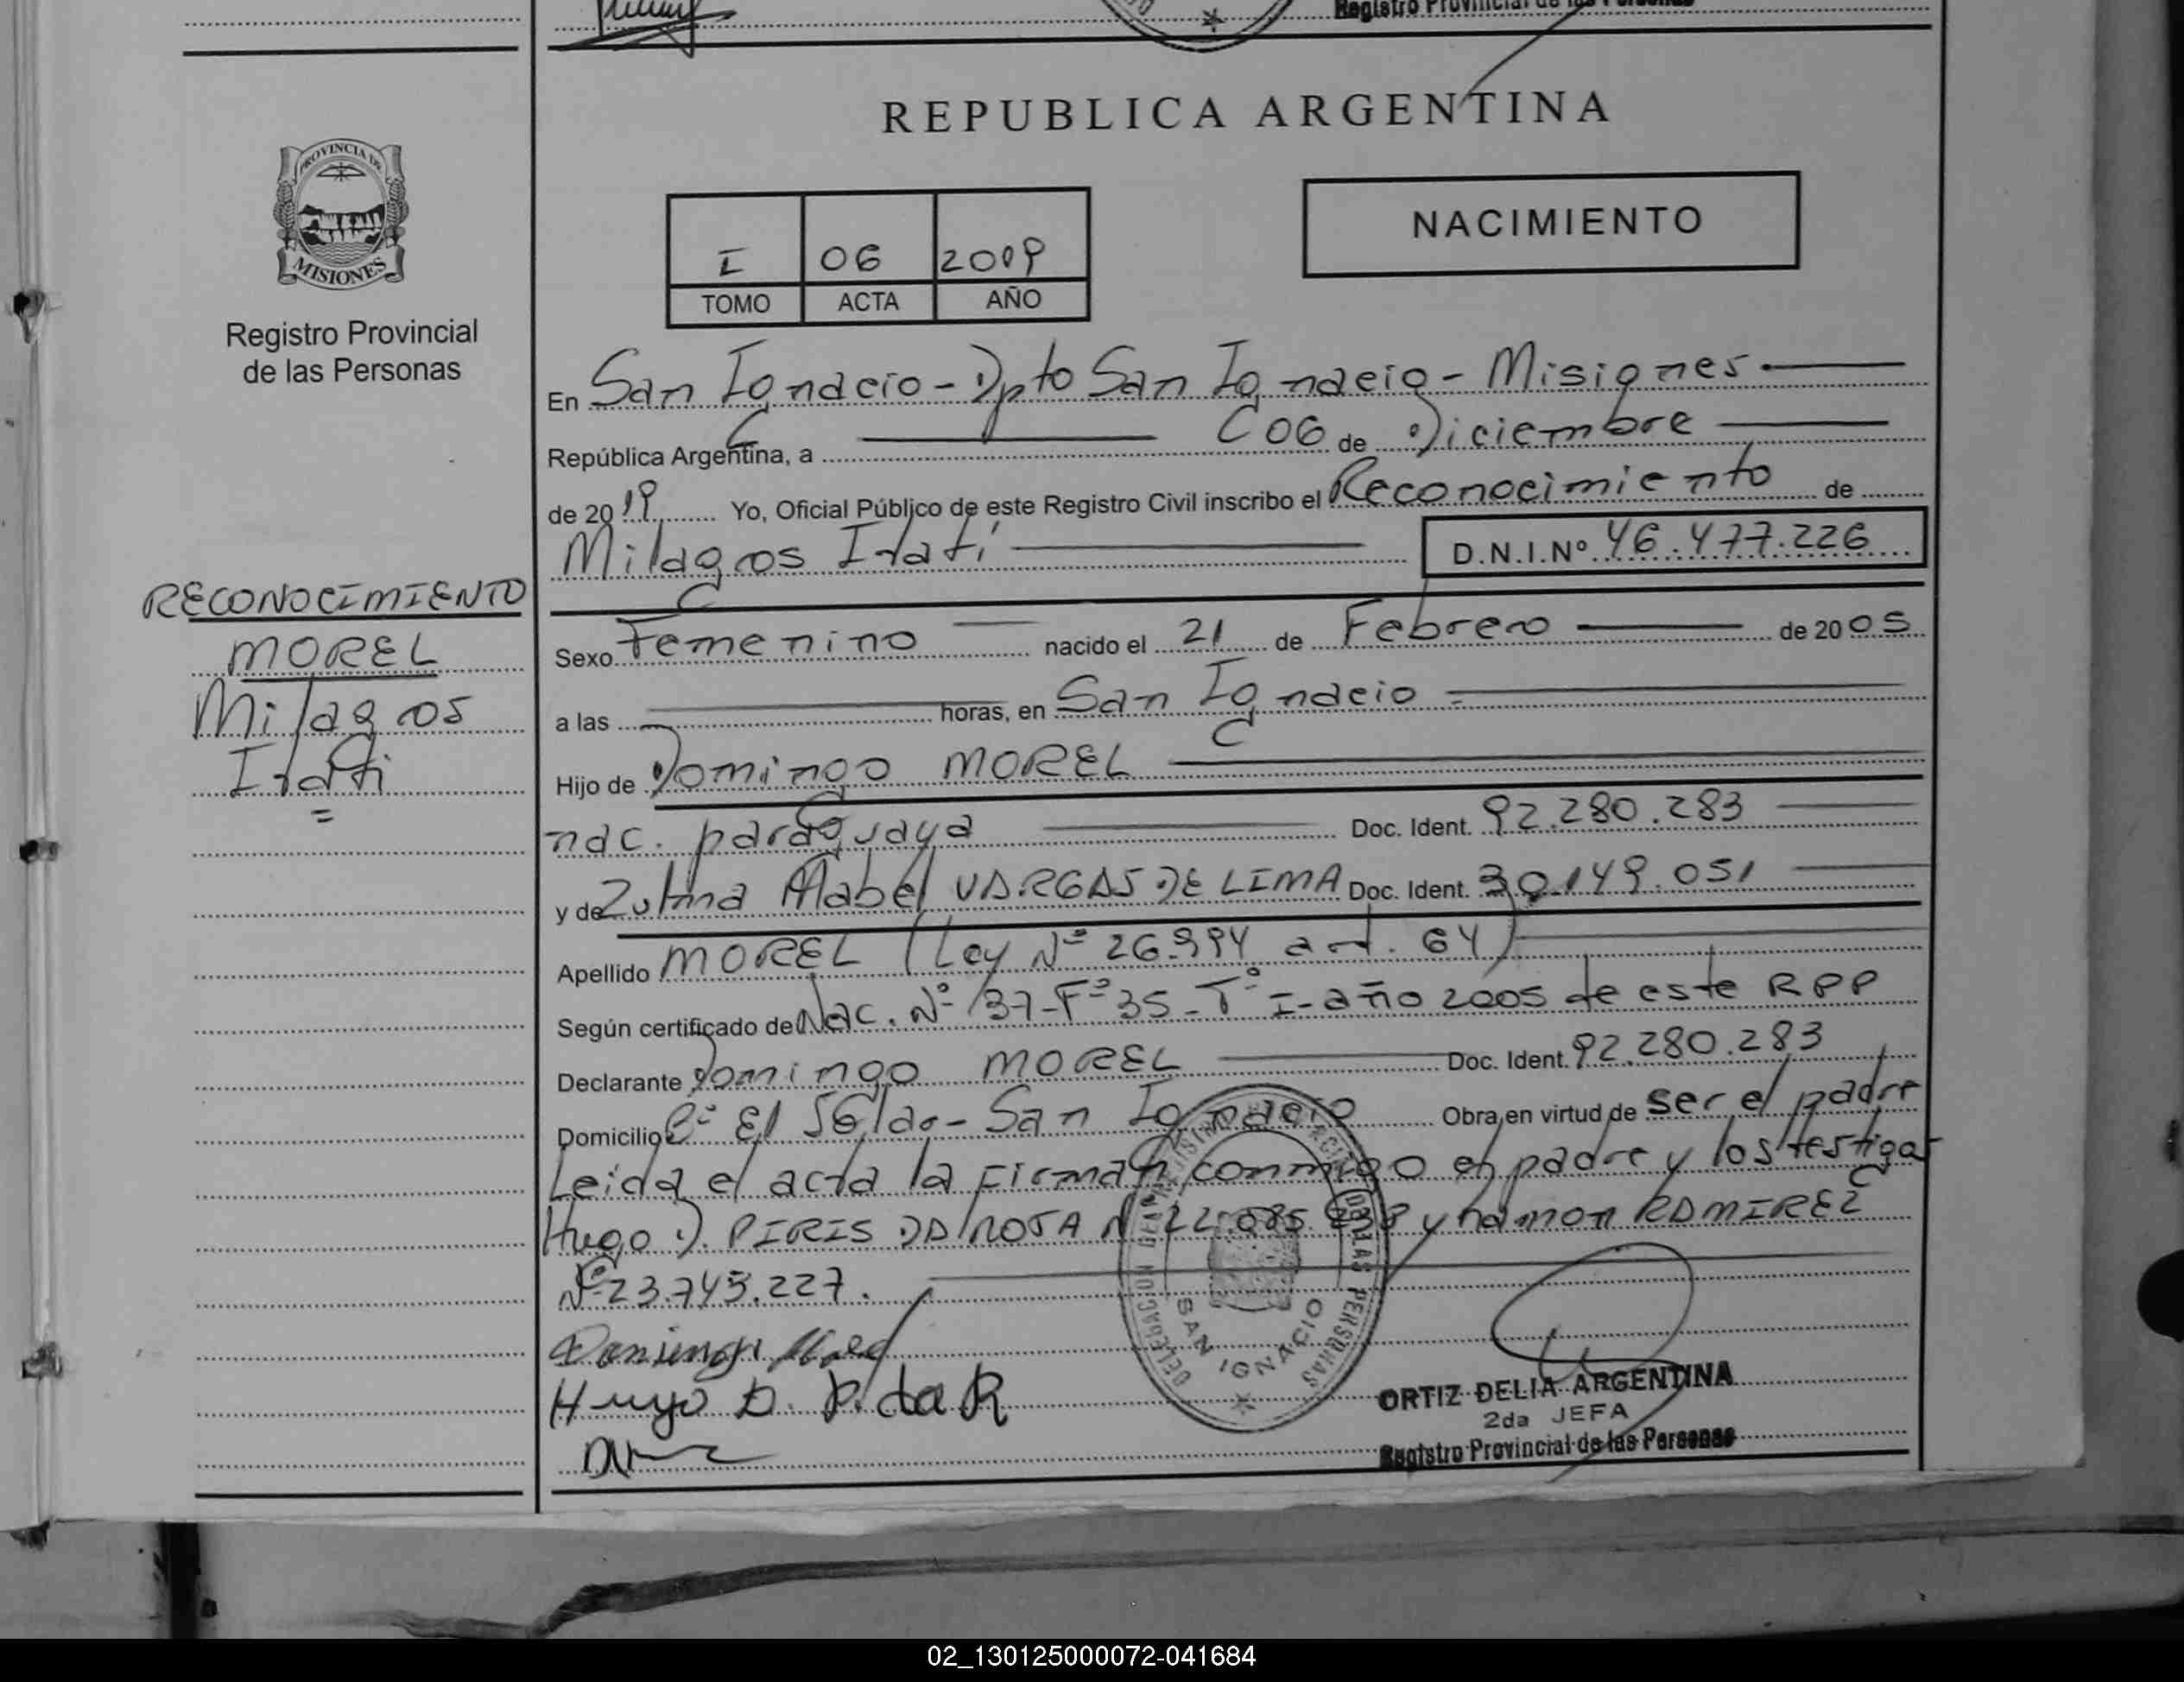 Registro Provincial de las Personas
REPUBLICA ARGENTINA
PROVINCIA DE
MISIONES
Registro Provincial
de las Personas
I 06 2019
TOMO ACTA AÑO
NACIMIENTO
En San Ignacio - Dpto San Ignacio - Misiones.
República Argentina, a C 06 de Diciembre
de 20 19 Yo, Oficial Público de este Registro Civil inscribo el Reconocimiento de
Milagros Itatí D.N.I.Nº 46.477.226
RECONOCIMIENTO
MOREL
Milagros
Itatí
=
Sexo Femenino nacido el 21 de Febrero de 20 05
a las horas, en San Ignacio =
Hijo de Domingo MOREL
nac. paraguaya Doc. Ident. 92.280.283
y de Zulma Mabel VARGAS DE LIMA Doc. Ident. 30.149.051
Apellido MOREL (Ley Nº 26.994 art. 64)
Según certificado de Nac. Nº 137-Fº 35-Tº I-año 2005 de este RPP
Declarante Domingo MOREL Doc. Ident. 92.280.283
Domicilio Bº El - San Ignacio Obra en virtud de ser el padre
Leida el acta la firman conmigo el padre y los testigos
Hugo D. PIRIS DA ROSA Nº y Ramon RAMIREZ
Nº 23.745.227.
Domingo Morel
Hugo D. P. da R
DELEGACION
REGISTRO PROVINCIAL DE LAS PERSONAS
SAN IGNACIO
ORTIZ DELIA ARGENTINA
2da JEFA
Registro Provincial de las Personas
02_130125000072-041684